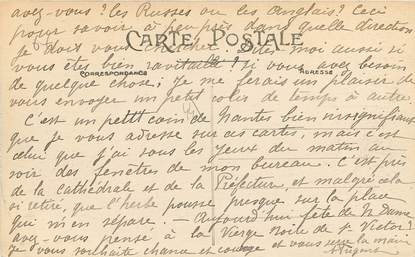 avez-vous? les Russes ou les Anglais? Ceci
pour savoir à peu près dans quelle direction
je dois vous chercher. Dites moi aussi si
CARTE POSTALE
vous êtes bien ravitaillé? si vous avez besoin
CORRESPONDANCE
ADRESSE
de quelque chose; je me ferais un plaisir de
vous envoyer un petit colis de temps à autre.
C'est un petit coin de Nantes bien insignifiant
que je vous adresse sur ces cartes, mais c'est
celui que j'ai sous les yeux du matin au
soir des fenêtres de mon bureau. C'est près
de la Cathédrale et de la Préfecture, et malgré cela
si retiré, que l'herbe pousse presque sur la place
qui m'en sépare. — Aujourd'hui fête de N. Dame
avez-vous pensé à la Vierge Noire de St Victor?
Je vous souhaite chance et courage et vous serre la main